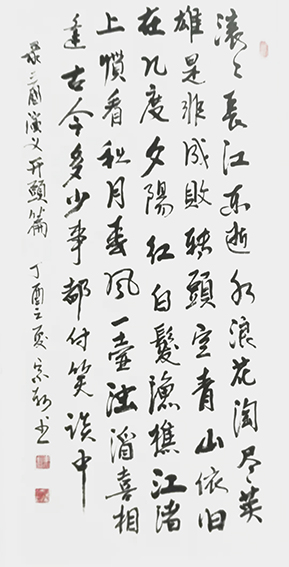 滚々长江东逝水浪花淘尽英
雄是非成败转头空青山依旧
在几度夕阳红白髮渔樵江渚
上惯看秋月春风一壶浊酒喜相
逢古今多少事都付笑谈中
录三国演义开头篇 丁酉之夏